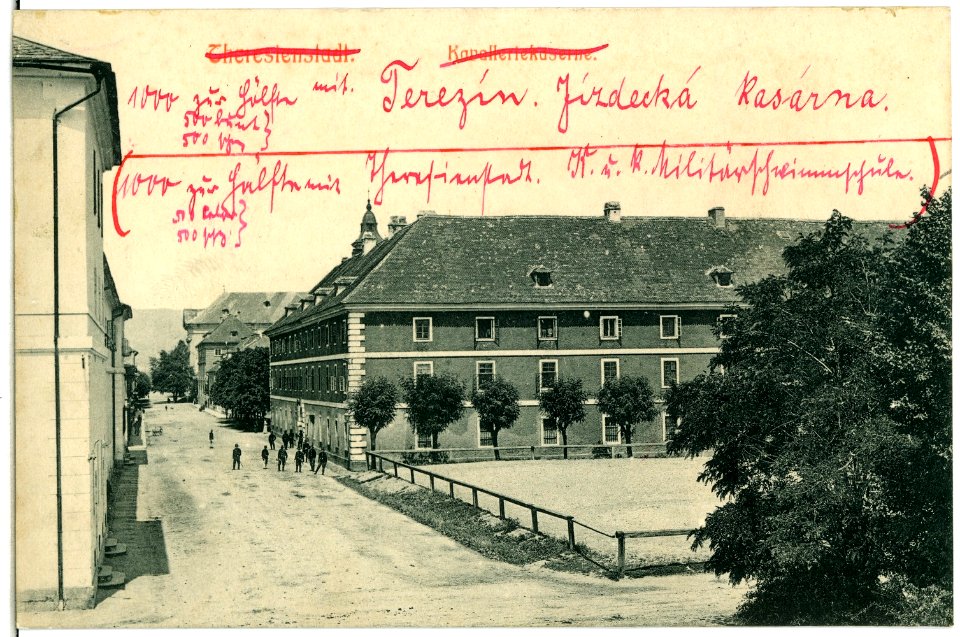 Theresienstadt. Kavalleriekaserne.
1000 zur Hälfte mit. Terezín. Jízdecká kasárna.
500 bunt }
500 }
(1000 zur Hälfte mit Theresienstadt. K. u. k. Militärschwimmschule.)
500 }
500 }